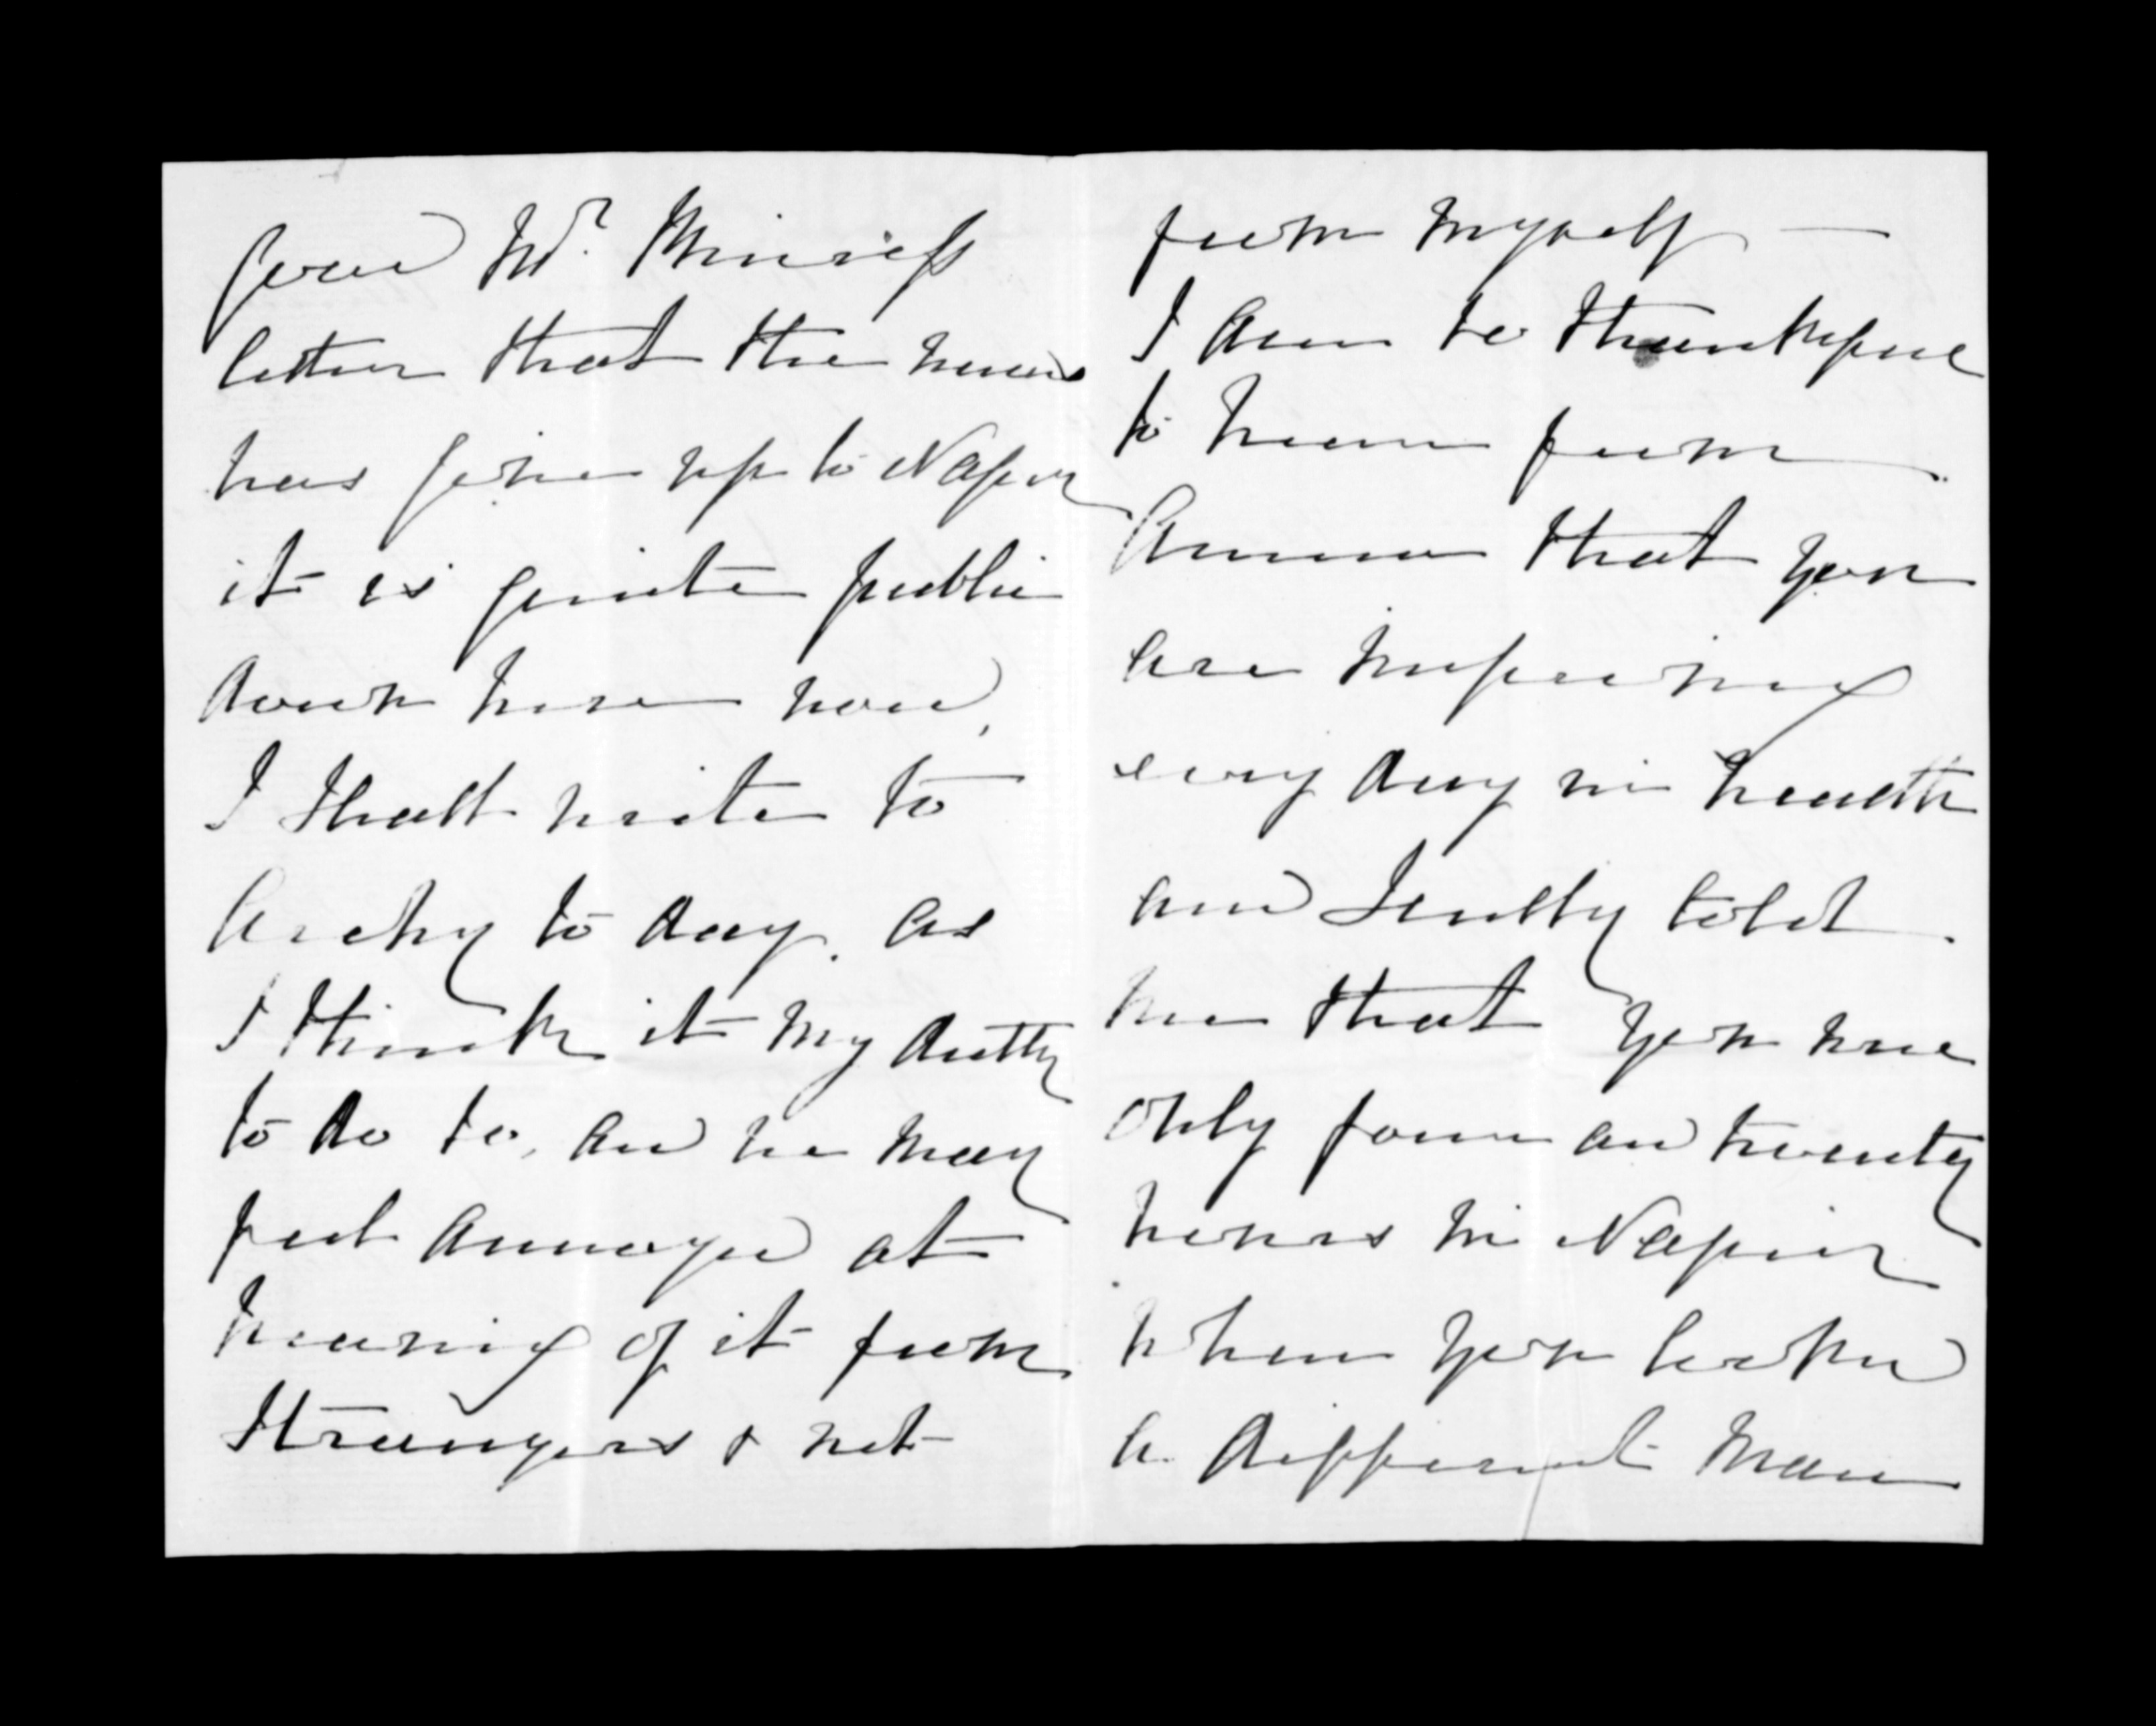 good Mr.
letter that the news
has gone up to Napier
it is quite public
down here now,
I shall write to
Archy to day. as
I think it my dutty
to do so, and he may
feel annoyed at
hearing of it from
Strangers & not
from myself —
I am so thankful
to hear from
Annie that you
are improving
every day in health
and Scully told
me that you were
only four and twenty
hours in Napier
when you looked
a different man